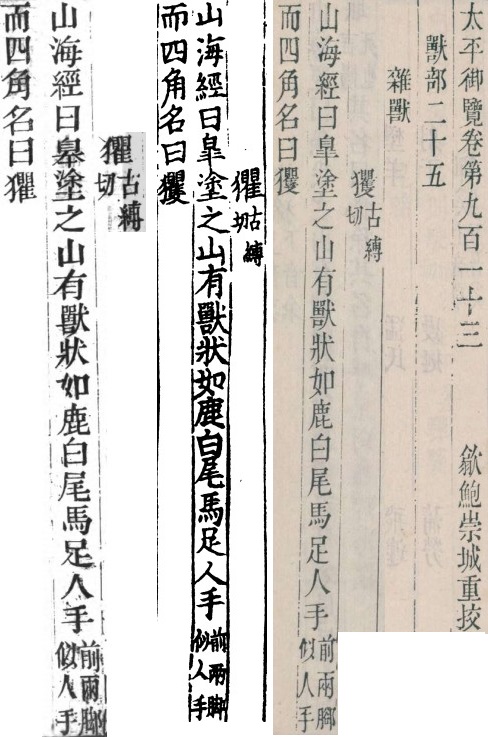 太平御覽卷第九百一十三 歙鮑崇城重挍
獸部二十五
雜獸
玃古縛切
山海經曰皐塗之山有獸狀如鹿白尾馬足人手前兩脚似人手
而四角名曰玃
㺢古縛切
山海經曰皐塗之山有獸狀如鹿白尾馬足人手前兩脚似人手
而四角名曰玃
㺢古縛切
山海經曰皋塗之山有獸狀如鹿白尾馬足人手前兩脚似人手
而四角名曰㺢